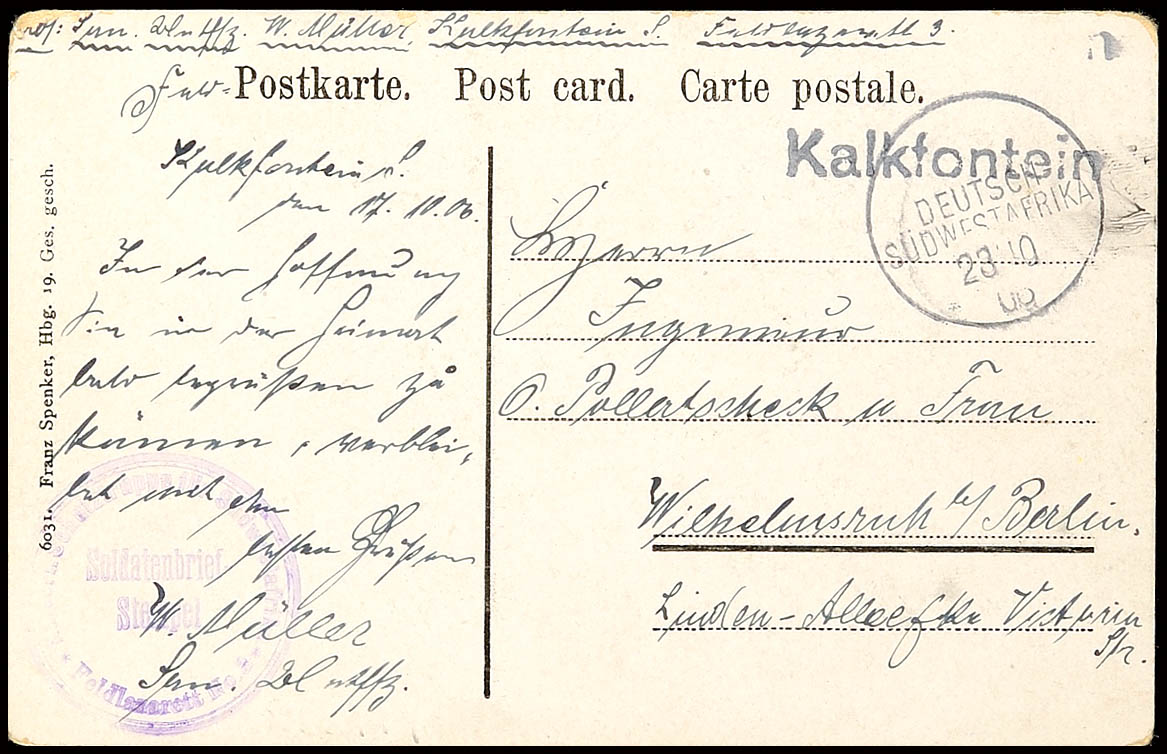 San. W. Müller Kalkfontein S. Feldlazarett 3.
Feld-Postkarte. Post card. Carte postale.
Kalkfontein
DEUTSCH-
SÜDWESTAFRIKA
23 10
06
Kalkfontein S.
den 17. 10. 06.
In der Hoffnung
Sie in der Heimat
bald begrüßen zu
können, verblei-
bet mit den
besten Grüßen
W. Müller
San.
Herrn
Ingenieur
O. Pollatscheck u Frau
Wilhelmsruh b/ Berlin.
Linden-Allee Ecke Victoria
Str.
6031. Franz Spenker, Hbg. 19. Ges. gesch.
Soldatenbrief-
Stempel
Feldlazarett No.